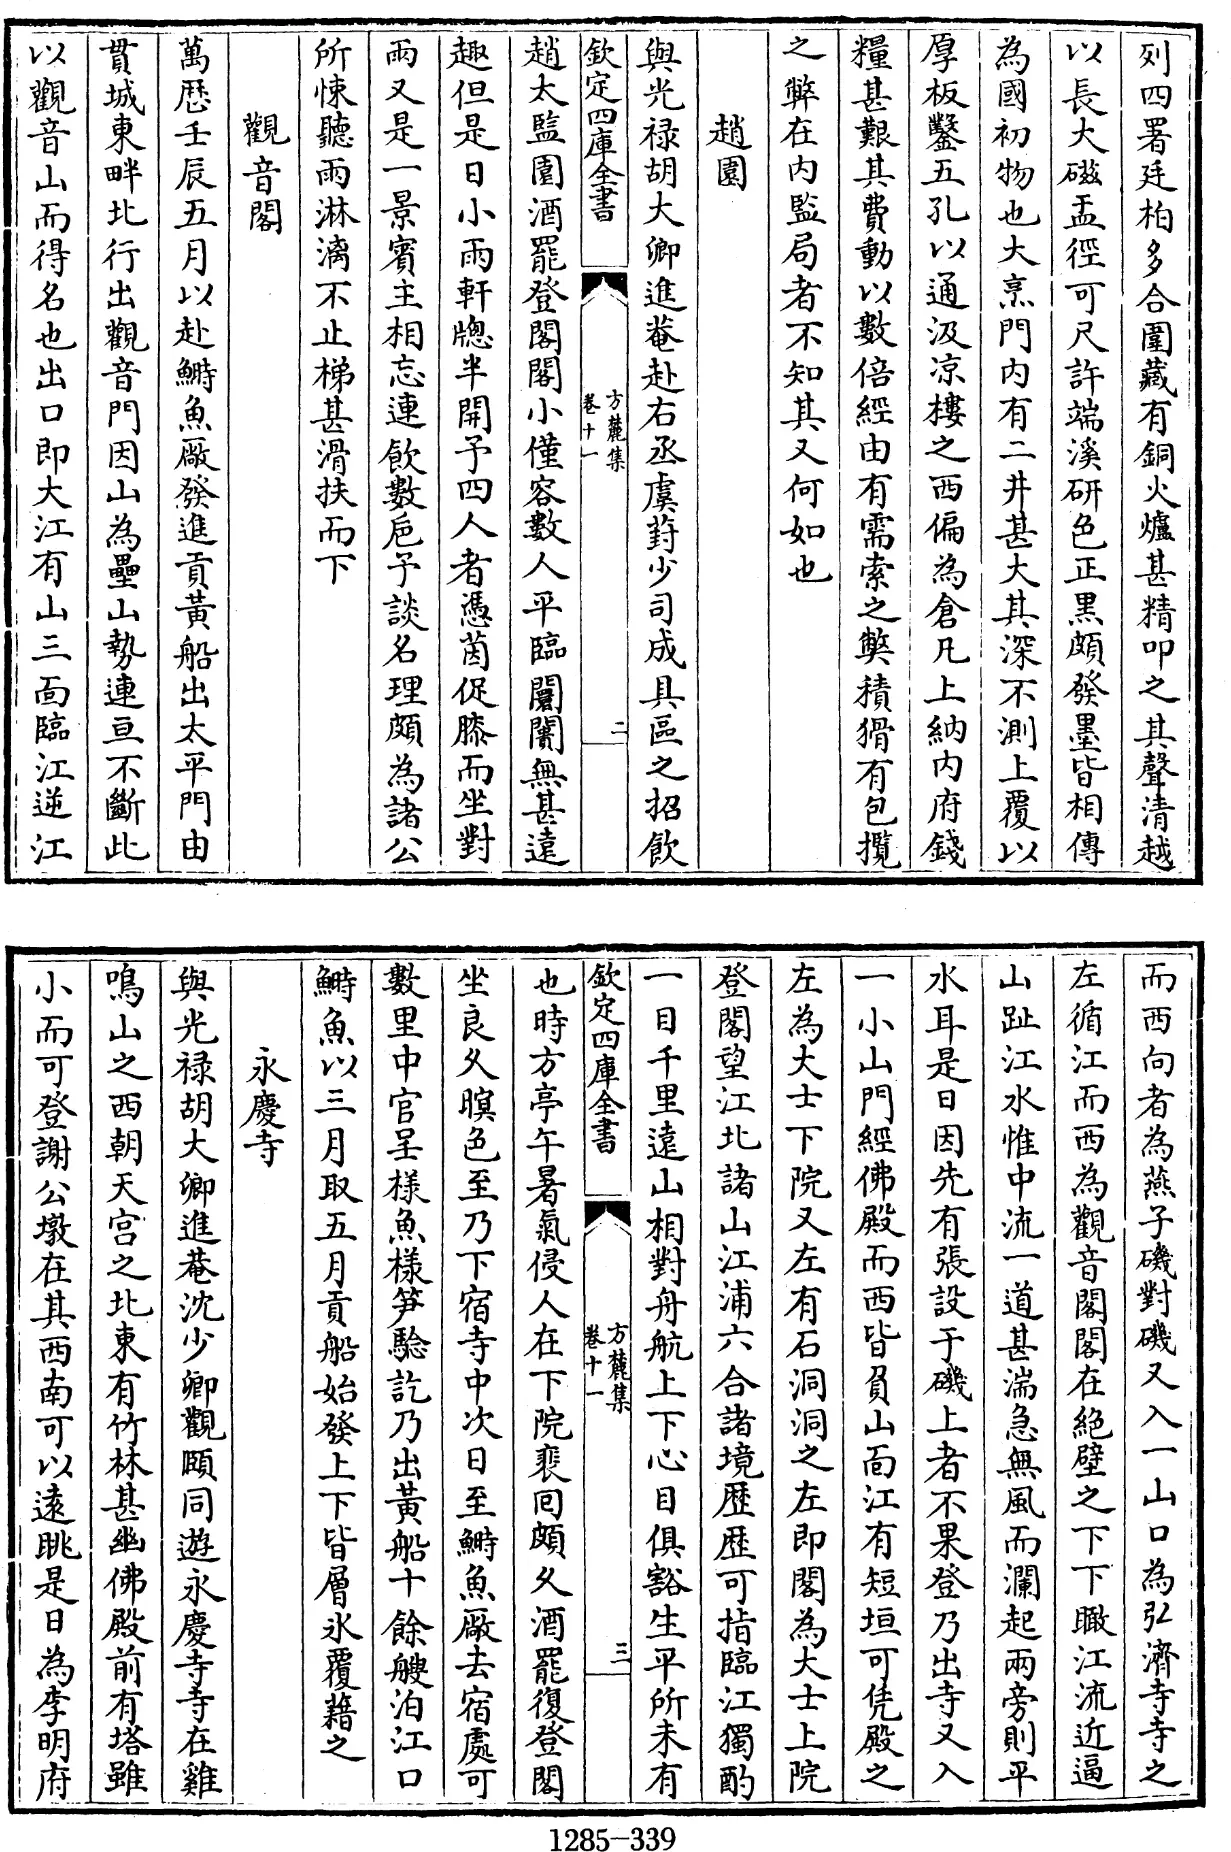 列四署廷柏多合圍藏有銅火爐甚精叩之其聲清越
以長大磁盂徑可尺許端溪研色正黒頗發墨皆相傳
為國初物也大烹門内有二井甚大其深不測上覆以
厚板鑿五孔以通汲凉樓之西偏為倉凡上納内府錢
糧甚艱其費動以數倍經由有需索之弊積猾有包攬
之弊在内監局者不知其又何如也
趙園
與光禄胡大卿進菴赴右丞虞葑少司成具區之招飲
欽定四庫全書
方麓集
卷十一
二
趙太監園酒罷登閣閣小僅容數人平臨闤闠無甚遠
趣但是日小雨軒牕半開予四人者憑茵促膝而坐對
雨又是一景賓主相忘連飲數巵予談名理頗為諸公
所悚聽雨淋漓不止梯甚滑扶而下
觀音閣
萬歴壬辰五月以赴鰣魚厰發進貢黄船出太平門由
貫城東畔北行出觀音門因山為壘山勢連亘不斷此
以觀音山而得名也出口即大江有山三面臨江逆江
而西向者為燕子磯對磯又入一山口為弘濟寺寺之
左循江而西為觀音閣閣在絶壁之下下瞰江流近逼
山趾江水惟中流一道甚湍急無風而瀾起兩旁則平
水耳是日因先有張設于磯上者不果登乃出寺又入
一小山門經佛殿而西皆負山面江有短垣可凭殿之
左為大士下院又左有石洞洞之左即閣為大士上院
登閣望江北諸山江浦六合諸境歴歴可指臨江獨酌
一目千里遠山相對舟航上下心目俱豁生平所未有
欽定四庫全書
方麓集
卷十一
三
也時方亭午暑氣侵人在下院裵囘頗久酒罷復登閣
坐良久暝色至乃下宿寺中次日至鰣魚厰去宿處可
數里中官呈様魚様笋驗訖乃出黄船十餘艘泊江口
鰣魚以三月取五月貢船始發上下皆層氷覆藉之
永慶寺
與光禄胡大卿進菴沈少卿觀頤同遊永慶寺寺在雞
鳴山之西朝天宫之北東有竹林甚幽佛殿前有塔雖
小而可登謝公墩在其西南可以遠眺是日為李明府
1285-339